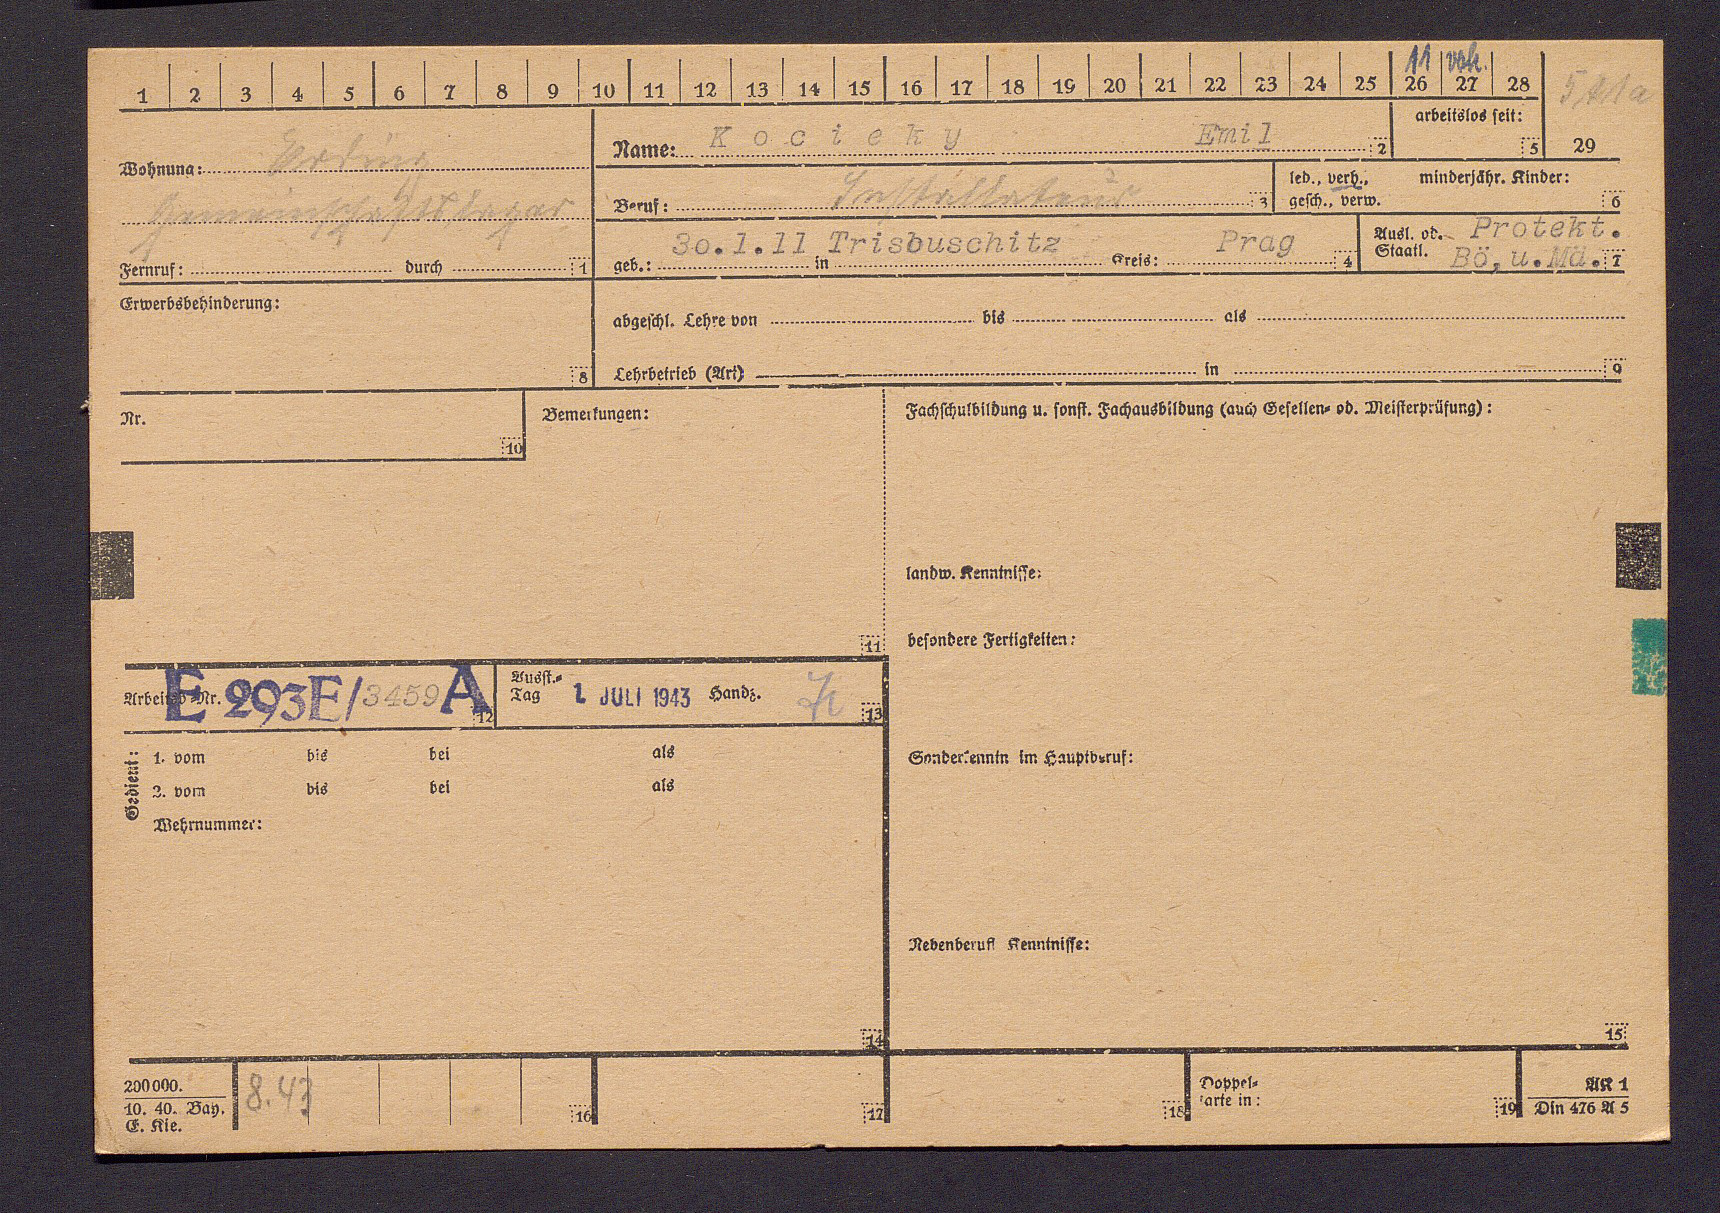 11 verh.
1 2 3 4 5 6 7 8 9 10 11 12 13 14 15 16 17 18 19 20 21 22 23 24 25 26 27 28
29
arbeitslos seit:
5
Wohnung: Erding
Gemeinschaftslager
Fernruf: durch 1
Name: Kocieky Emil 2
Beruf: Installateur 3
led., verh., minderjähr. Kinder:
gesch., verw. 6
geb.: 30.1.11 in Trisbuschitz Kreis: Prag 4
Ausl. od. Protekt.
Staatl. Bö,u.Mä. 7
Erwerbsbehinderung:
8
abgeschl. Lehre von bis als
Lehrbetrieb (Art) in 9
Nr.
10
Bemerkungen:
11
Fachschulbildung u. sonst. Fachausbildung (auch Gesellen- od. Meisterprüfung):
landw. Kenntnisse:
besondere Fertigkeiten:
Sonderkenntn im Hauptberuf:
Nebenberufl Kenntnisse:
15
Arbeitsb-Nr. E 293E/3459 A 12
Ausst.-
Tag 1. JULI 1943 Handz. 13
Gedient:
1. vom bis bei als
2. vom bis bei als
Wehrnummer:
14
200000.
10. 40. Bay.
E. Kie.
8.43
16
17
18
Doppel-
karte in:
19
AK 1
Din 476 A 5